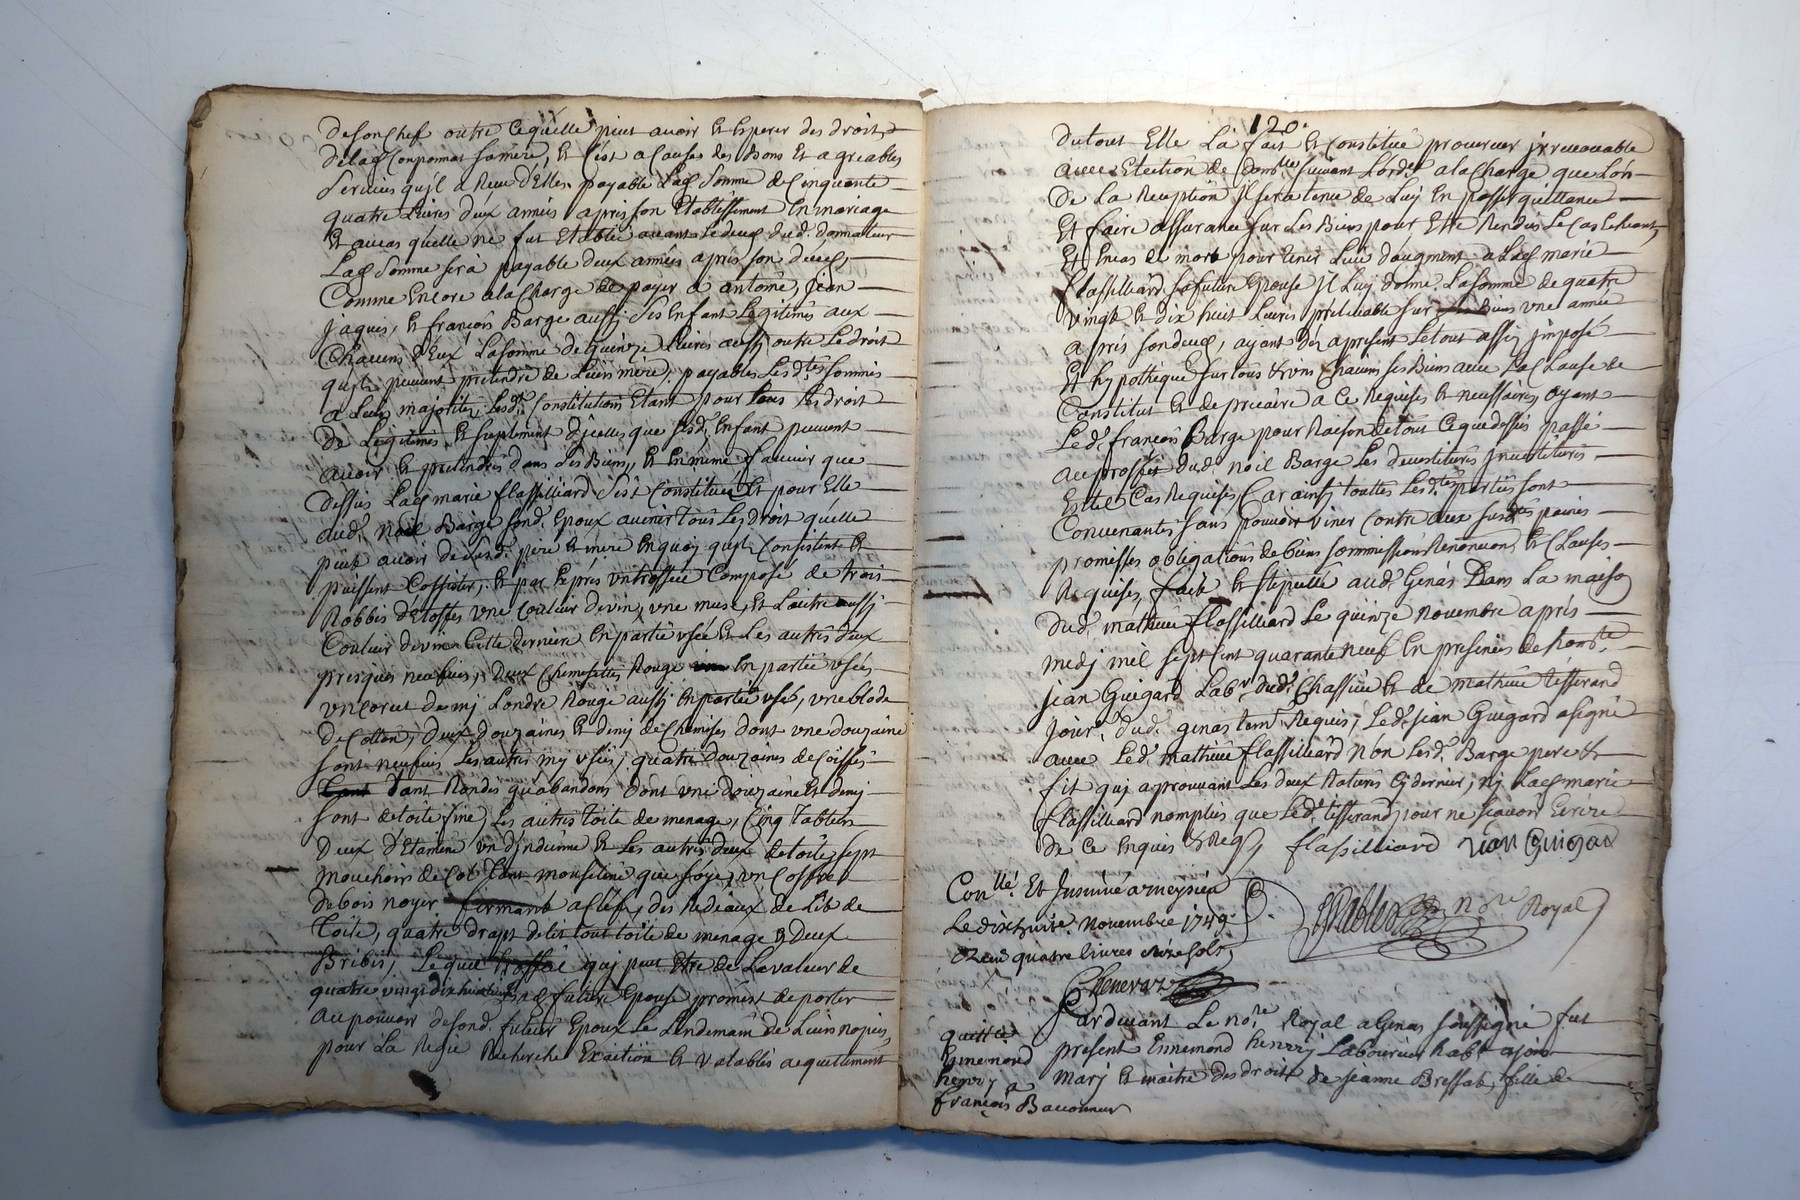 de son Chef outre ce qu'elle peut avoir Et Esperer des droits
de lad Conponmat sa mere, Et C'est a Causes des Bons Et agreables
services qu'jl a Reçue d'Elle payable Lad somme de Cinquante
quatre Livres deux années apres son Etablissement En mariage
Et aucas qu'elle ne fut Etablie avant Le deces dud. donnateur
Lad somme sera payable deux années aprés son deces,
Comme Encore a la Charge de payer a antoine, jean
jaques, Et françois Barge aussj ses Enfant Legitimes aux
Chacuns d'Eux La somme de quinze Livres aussj outre Le droit
qu'jls peuvent pretendre de Leurs mere, payables Lesd.tes sommes
a Leurs majorités, Lesd. Constitutions Etant pour tous Les droit
de Legitimes Et supplement d'jcelles que sesd. Enfant peuvent
avoir Et pretendre dans ses Biens, Et En même faveur que
dessus Lad marie flassilliard s'est Constituée Et pour Elle
aud. noël Barge sond. Epoux avenir tous Les droit qu'elle
peut avoir de sesd. pere Et mere En quoy qu'jls Consistent Et
puissent Cossister, Et par Exprés un trossel Composé de trois
Robbes d'Etoffes une Couleur de vin, une muse, Et L'autre aussj
Couleur de vin Cette derniere En partie usée Et Les autres deux
presques neufves, deux Chemisettes Rouge En partie usées
un Corcet demj Londre Rouge aussj En partie usé, une blode
de Cotton, deux douzaines Et demj de Chemises dont une douzaine
sont neufves Les autres mj usés, quatre douzaines de Coiffes
tant Rondes qu'abandons dont une douzaine Et demj
sont de toile fine, Les autres toile de menage, Cinq tabliers
deux d'Etamine un d'jndienne Et Les autres deux de toile, sept
mouchoirs de Col mousseline que soye, un Coffre
de bois noyer fermant a Clef, des Rideaux de Lit de
toile, quatre draps de lit tout toile de menage & deux
Bribis, Lequel trossel quj peut Etre de La valeur de
quatre vingt dix huit Livres Lad future Epouse promest de porter
au pouvoir de sond. futeur Epoux Le Lendemain de Leurs nopces,
pour La Regie Recherche Exaction Et valables acquittement
120.
du tout Elle L'a fait Et Constitué procureur jrrevocable
avec Election de dom.lle suivant L'ord.e a la Charge que Lor
de La Reception jl sera tenu de Luj En passer quittance
Et faire assurance sur Ses Biens pour Etre Rendus Le Cas Echeant,
Et En cas de mort pour tenir Lieu d'augment a Lad marie
flassilliard sa future Epouse jl Luj donne La somme de quatre
vingt Et dix huit Livres prelevable sur ses Biens une année
aprés son deces, ayant dés apresent Le tout assis jmposé
Et hypothequé sur tous & uns Chacuns ses Biens avec La Clause de
Constitut Et de precaire a Ce Requises Et necessaires, ayant
Led. françois Barge pour Raison de tout Ce que dessus passé
au proffit dud. noël Barge Les devestitures jnvestitures
En tel Cas Requises, Car ainsj toutes Lesd.tes parties sont
Convenantes sans pouvoir venir Contre aux susd.tes peines
promisses obligations de biens soummissions Renoncions, Et Clauses
Requises, fait Et stipullé aud. Genas Dans La maison
dud. mathieu flassilliard Le quinze novembre aprés
midj mil sept Cent quarante neuf En presences de hon.te
jean Guigard Lab.r dud. Chassieu Et de mathieu tisserand
jour. dud. genas tem. Requis, Led. jean Guigard a signé
avec Led. mathieu flassilliard non Lesd. Barge pere &
fit quj aprouvant Les deux Ratures Cj dernier, nj Lad marie
flassilliard nomplus que Led. tisserand, pour ne sçavoir Ecrire
de Ce Enquis & Req, flassilliard jean Guigar
Con.llé Et Jnsinué a meysieu
Le dixhuit. Novembre 1749.
Receu quatre livres saize sols
n.re Royal
Chenevaz
Pardevant Le No.re Royal a Genas soussigné fut
present Ennemond henrj Laboureur hab.t
marj Et maitre des droit de jeanne Bressat, fille de
quitt.ce
Ennemond
henry a
françois Baconneur